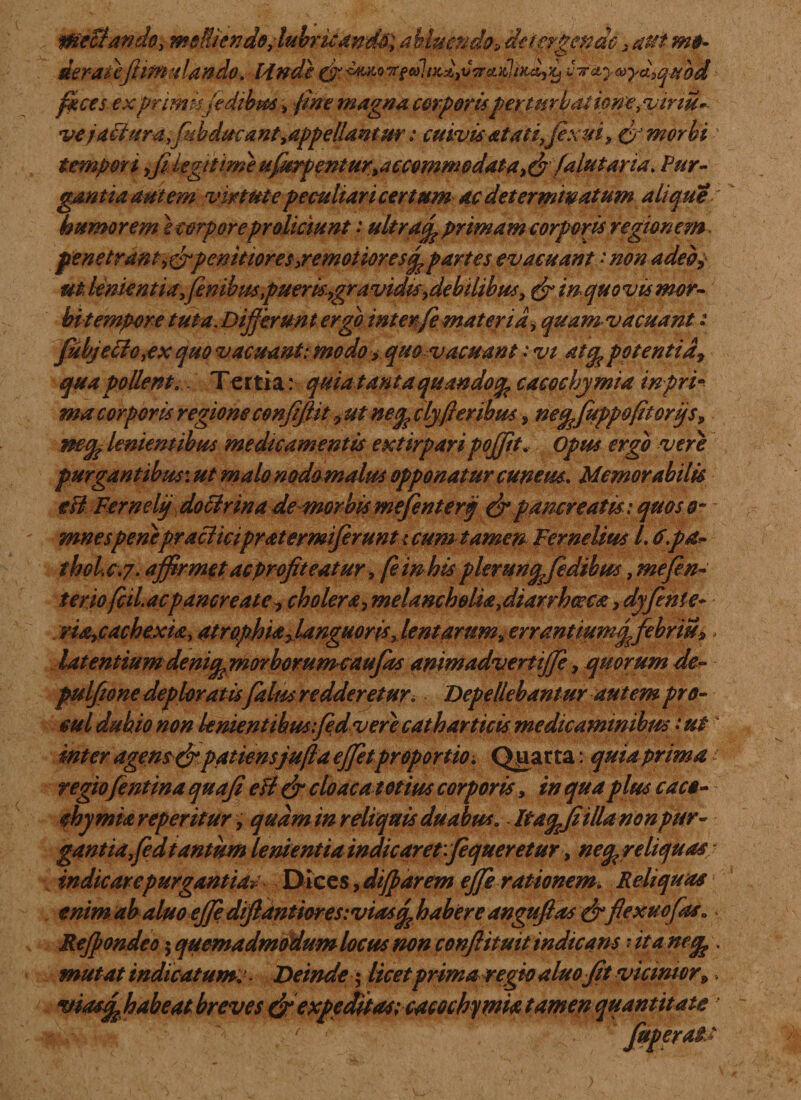 mectando, molliendo, lubricando, abluendo, detergendo, aut mo-
derate stimulando. Unde & ἐκκοπρωτικὰ, ὑπακτικὰ, ϗ ὑπαγωγὰ, quòd
fæces ex primis sedibus, sine magna corporis perturbatione, virtu-
ve jactura, subducant, appellantur: cuivis ætati, sexui, & morbi
tempori, si legitime usurpentur, accommodata, & salutaria. Pur-
gantia autem virtute peculiari certum ac determinatum aliquē
humorem è corpore proliciunt: ultraq; primam corporis regionem
penetrant, & penitiores, remotioresq; partes evacuant: non adeò,
ut lenientia, senibus, pueris, gravidis, debilibus, & in quovis mor-
bi tempore tuta. Differunt ergò inter se materiâ, quam vacuant:
subjecto, ex quo vacuant: modo, quo vacuant: vt atq; potentiâ,
qua pollent. Tertia: quia tanta quandoq; cacochymia in pri-
ma corporis regione consistit, ut neq; clysteribus, neq; suppositorijs,
neq; lenientibus medicamentis extirpari possit. Opus ergò verè
purgantibus: ut malo nodo malus opponatur cuneus. Memorabilis
est Fernelij doctrina de morbis mesenterij & pancreatis: quos o-
mnes penè practici prætermiserunt: cum tamen Fernelius l. 6. pa-
thol. c. 7. affirmet ac profiteatur, se in his plerunq; sedibus, mesen-
terio scil. ac pancreate, choleræ, melancholiæ, diarrhœcæ, dysente-
riæ, cachexiæ, atrophiæ, languoris, lentarum, errantiumq; febriū,
latentium deniq; morborum causas animadvertisse, quorum de-
pulsione deploratis salus redderetur. Depellebantur autem pro-
cul dubio non lenientibus: sed verè catharticis medicaminibus: ut
inter agens & patiens justa esset proportio. Quarta: quia prima
regio sentina quasi est & cloaca totius corporis, in qua plus caco-
chymiæ reperitur, quàm in reliquis duabus. Itaq; si illa non pur-
gantia, sed tantùm lenientia indicaret: sequeretur, neq; reliquas
indicare purgantia. Dices, disparem esse rationem. Reliquas
enim ab aluo esse distantiores: viasq; habere angustas & flexuosas.
Respondeo; quemadmodum locus non constituit indicans: ita neq;
mutat indicatum. Deinde; licet prima regio aluo sit vicinior,
viasq; habeat breves & expeditas: cacochymiæ tamen quantitate
superat: